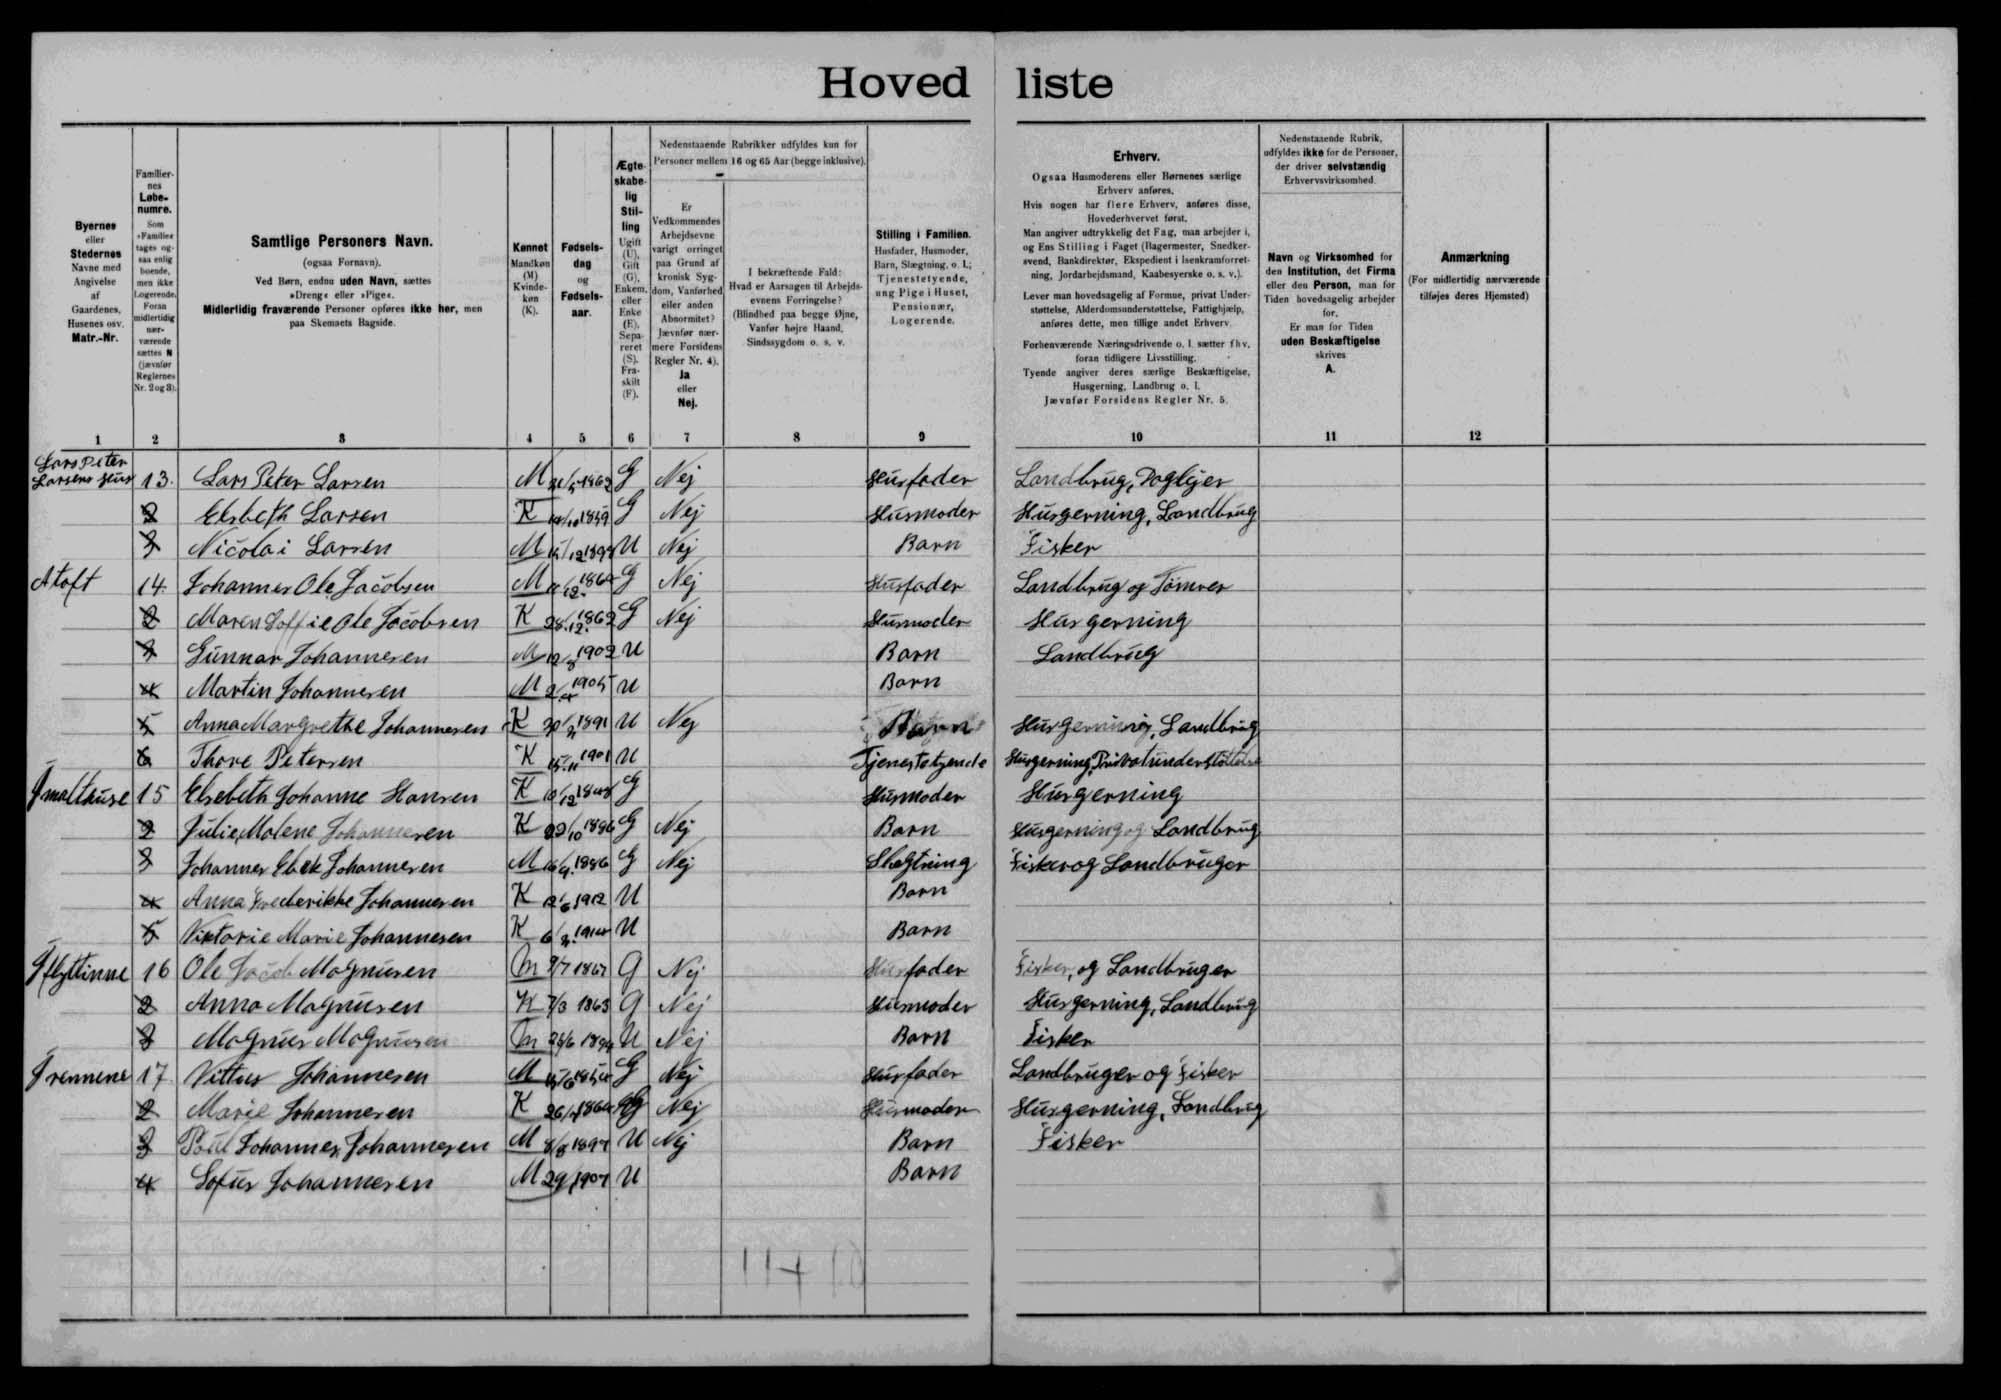 Hoved liste
Byernes
eller
Stedernes
Navne med
Angivelse
af
Gaardenes,
Husenes osv.
Matr.-Nr.
Familier-
nes
Løbe-
numre.
Som
»Familie«
tages og-
saa enlig
boende,
men ikke
Logerende.
Foran
midlertidig
nær-
værende
sættes N
(jævnfør
Reglernes
Nr. 2 og 3).
Samtlige Personers Navn.
(ogsaa Fornavn).
Ved Børn, endnu uden Navn, sættes
»Dreng« eller »Pige«.
Midlertidig fraværende Personer opføres ikke her, men
paa Skemaets Bagside.
Kønnet
Mandkøn
(M)
Kvinde-
køn
(K).
Fødsels-
dag
og
Fødsels-
aar.
Ægte-
skabe-
lig
Stil-
ling
Ugift
(U),
Gift
(G),
Enkem.
eller
Enke
(E),
Sepa-
reret
(S).
Fra-
skilt
(F).
Nedenstaaende Rubrikker udfyldes kun for
Personer mellem 16 og 65 Aar (begge inklusive).
Er
Vedkommendes
Arbejdsevne
varigt forringet
paa Grund af
kronisk Syg-
dom, Vanførhed
eller anden
Abnormitet?
Jævnfør nær-
mere Forsidens
Regler Nr. 4).
Ja
eller
Nej.
I bekræftende Fald:
Hvad er Aarsagen til Arbejds-
evnens Forringelse?
(Blindhed paa begge Øjne,
Vanfør højre Haand,
Sindssygdom o. s. v.
Stilling i Familien.
Husfader, Husmoder,
Barn, Slægtning, o. l.;
Tjenestetyende,
ung Pige i Huset,
Pensionær,
Logerende.
Erhverv.
Ogsaa Husmoderens eller Børnenes særlige
Erhverv anføres.
Hvis nogen har flere Erhverv, anføres disse,
Hovederhvervet først.
Man angiver udtrykkelig det Fag, man arbejder i,
og Ens Stilling i Faget (Bagermester, Snedker-
svend, Bankdirektør, Ekspedient i Isenkramforret-
ning, Jordarbejdsmand, Kaabesyerske o. s. v.).
Lever man hovedsagelig af Formue, privat Under-
støttelse, Alderdomsunderstøttelse, Fattighjælp,
anføres dette, men tillige andet Erhverv.
Forhenværende Næringsdrivende o. l. sætter fhv.
foran tidligere Livsstilling.
Tyende angiver deres særlige Beskæftigelse,
Husgerning, Landbrug o. l.
Jævnfør Forsidens Regler Nr. 5.
Nedenstaaende Rubrik,
udfyldes ikke for de Personer,
der driver selvstændig
Erhvervsvirksomhed.
Navn og Virksomhed for
den Institution, det Firma
eller den Person, man for
Tiden hovedsagelig arbejder
for.
Er man for Tiden
uden Beskæftigelse
skrives
A.
Anmærkning
(For midlertidig nærværende
tilføjes deres Hjemsted)
1 2 3 4 5 6 7 8 9 10 11 12
Lars Peter
Larsens Hus 13. Lars Peter Larsen M 1862 G Nej Husfader Landbrug, Daglejer
2 Elsbeth Larsen K 1859 G Nej Husmoder Husgerning, Landbrug
3 Nicolai Larsen M U Nej Barn Fisker
Atoft 14. Johannes Ole Jacobsen M G Nej Husfader Landbrug og Tømrer
2 Maren Soffie Ole Jacobsen K 28/12 1862 G Nej Husmoder Husgerning
3 Gunnar Johannesen M 1902 U Barn Landbrug
4 Martin Johannesen M 1905 U Barn
5 Anna Margrethe Johannesen K 1891 U Nej Barn Husgerning, Landbrug
6 Thore Petersen K 15/11 1901 U Tjenestetyende Husgerning, Privatunderstøttelse
15 Elsebeth Johanne Hansen K G Husmoder Husgerning
2 Julie Malene Johannesen K 22/10 1896 G Nej Barn Husgerning og Landbrug
3 Johannes Johannesen M 1886 G Nej Slægtning Fisker og Landbruger
4 Anna Frederikke Johannesen K 12/6 1912 U Barn
5 Viktorie Marie Johannesen K U Barn
16 Ole Jacob Magnusen M G Nej Husfader Fisker, og Landbruger
2 Anna Magnusen K 7/3 1863 G Nej Husmoder Husgerning, Landbrug
3 Magnus Magnusen M U Nej Barn Fisker
17 Vittus Johannesen M G Nej Husfader Landbruger og Fisker
2 Marie Johannesen K G Nej Husmoder Husgerning, Landbrug
3 Poul Johannes Johannesen M 8/8 1897 U Nej Barn Fisker
4 Sofus Johannesen M U Barn